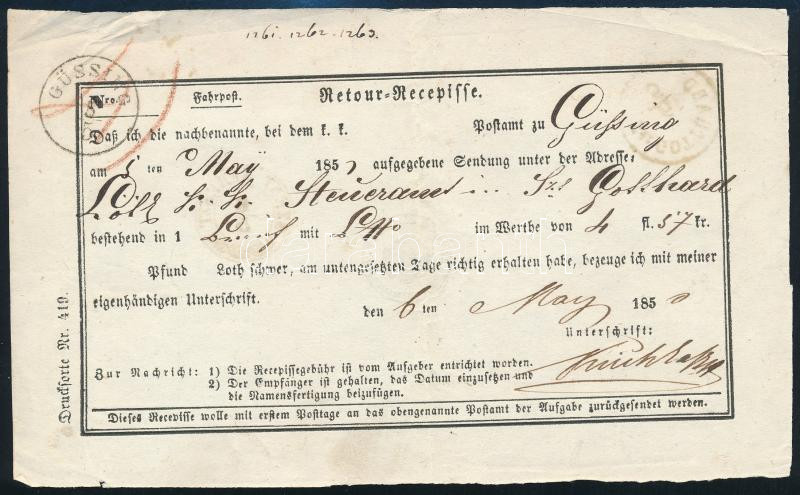 1261. 1262. 1263.
GÜSSING
Nro. Fahrpost. Retour-Recepisse.
Daß ich die nachbenannte, bei dem k. k. Postamt zu Güßing
am 5 ten May 185 aufgegebene Sendung unter der Adresse:
Löbl k. k. Steueramt in Szt Gotthard
bestehend in 1 Brief mit im Werthe von 4 fl. 57 kr.
Pfund Loth schwer, am untengesetzten Tage richtig erhalten habe, bezeuge ich mit meiner
eigenhändigen Unterschrift.
den 6 ten May 185
Unterschrift:
Zur Nachricht: 1) Die Recepissegebühr ist vom Aufgeber entrichtet worden.
2) Der Empfänger ist gehalten, das Datum einzusetzen und
die Namensfertigung beizufügen.
Dieses Recepisse wolle mit erstem Posttage an das obengenannte Postamt der Aufgabe zurückgesendet werden.
Drucksorte Nr. 419.
darabanth